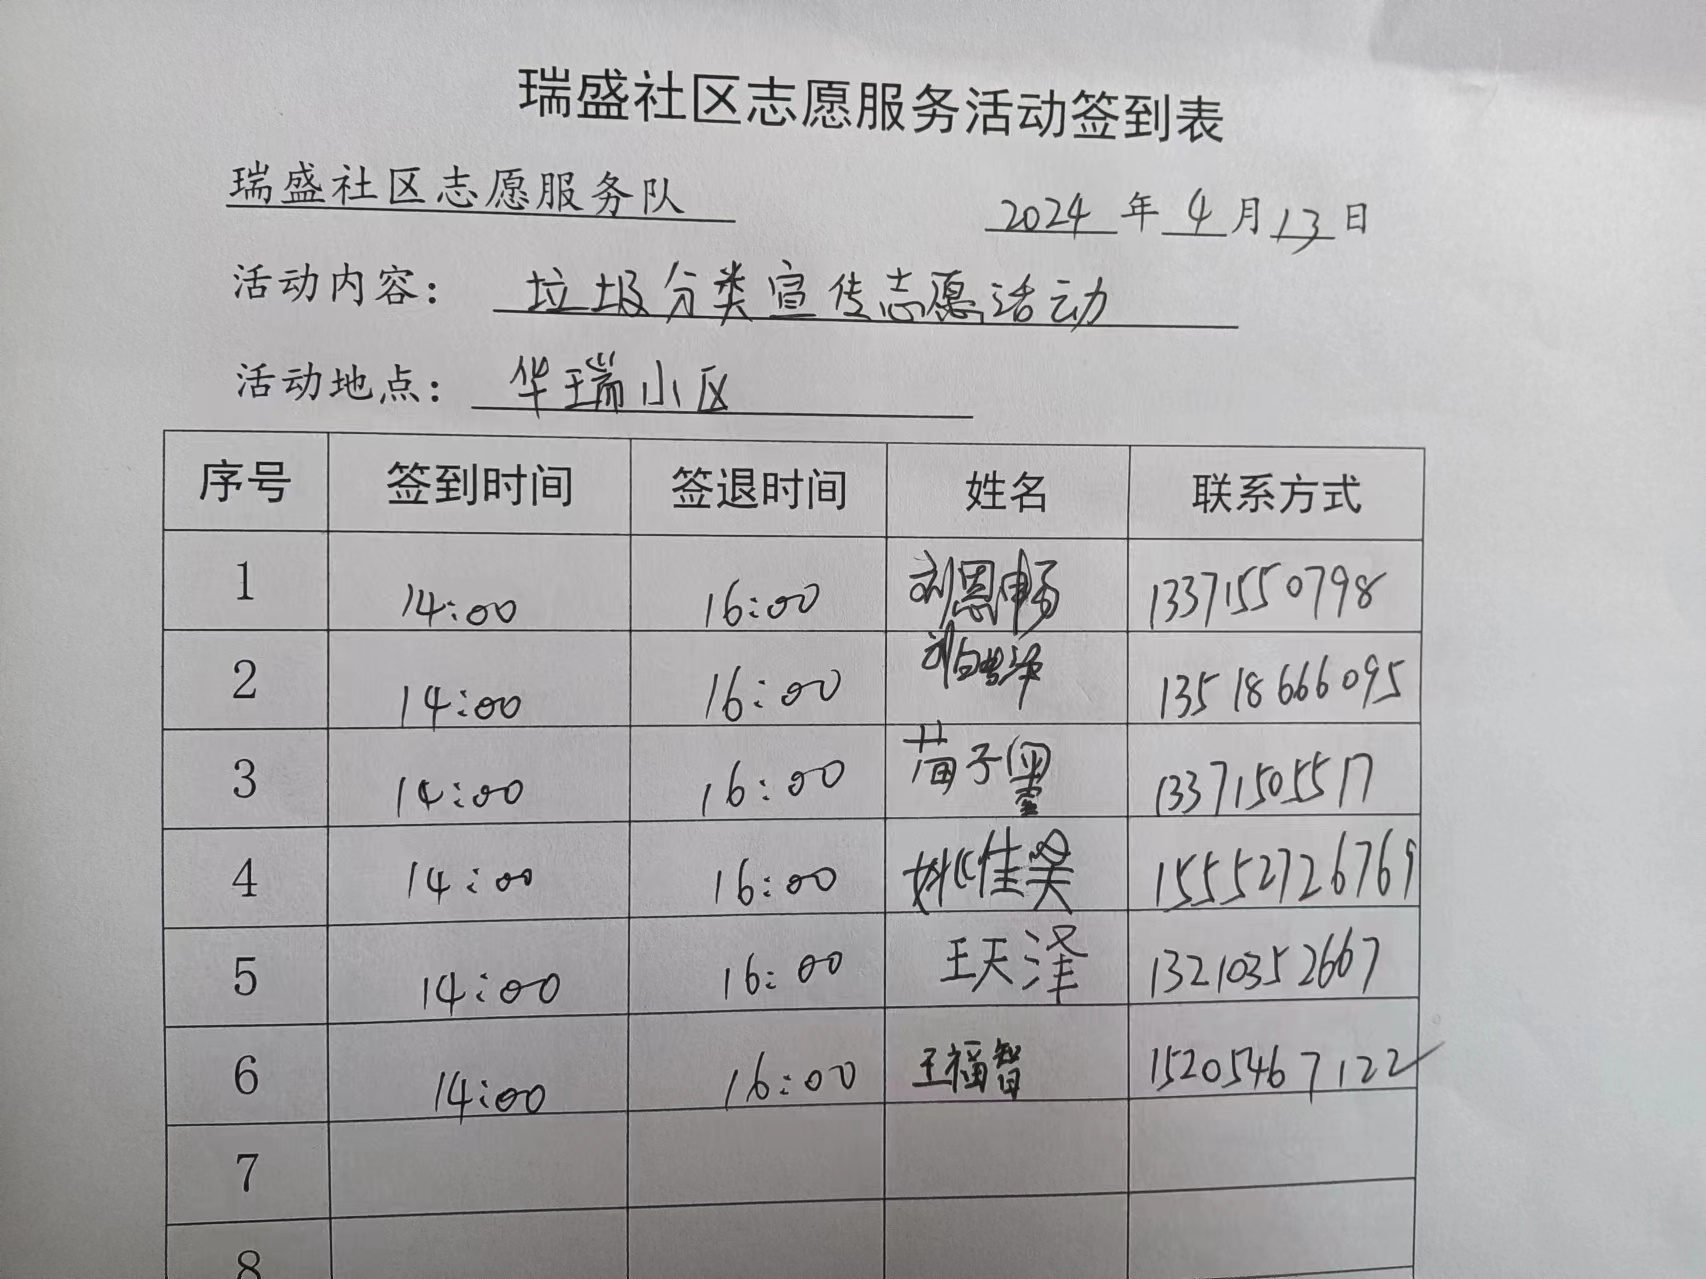 瑞盛社区志愿服务活动签到表
瑞盛社区志愿服务队 2024 年 4 月 13 日
活动内容： 垃圾分类宣传志愿活动
活动地点： 华瑞小区
序号 签到时间 签退时间 姓名 联系方式
1 14:00 16:00 刘恩畅 13371550798
2 14:00 16:00 13518666095
3 14:00 16:00 苗子墨 13371505517
4 14:00 16:00 姚佳昊 15552726769
5 14:00 16:00 王天泽 13210352667
6 14:00 16:00 王福智 15205467122
7
8